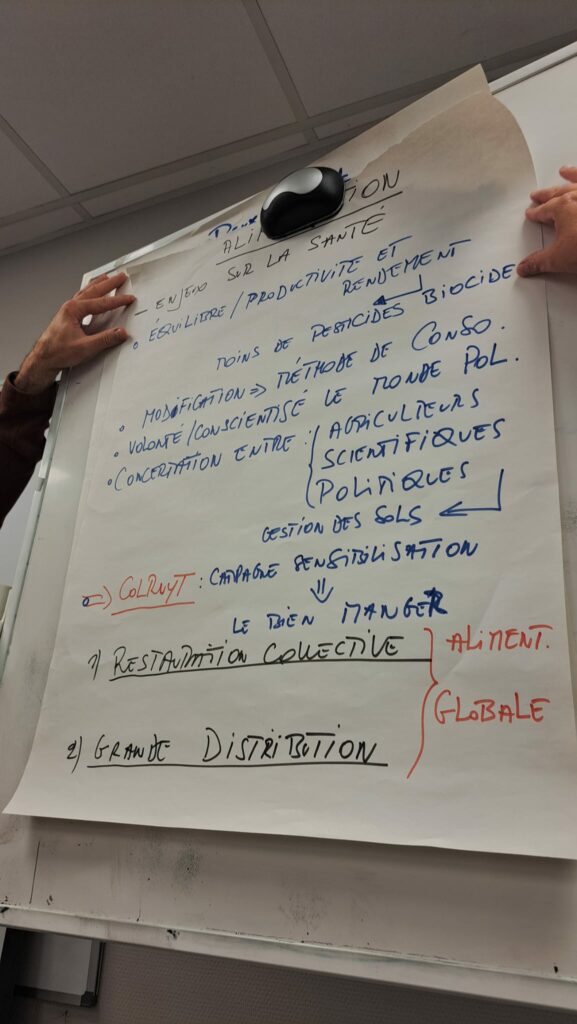 ALI TION
- ENJEU SUR LA SANTÉ
• ÉQUILIBRE / PRODUCTIVITÉ ET RENDEMENT
MOINS DE PESTICIDES BIOCIDE
• MODIFICATION => MÉTHODE DE CONSO.
• VOLONTÉ / CONSCIENTISÉ LE MONDE POL.
• CONCERTATION ENTRE : { AGRICULTEURS
SCIENTIFIQUES
POLITIQUES
GESTION DES SOLS
=> COLRUYT : CAMPAGNE SENSIBILISATION
LE BIEN MANGER
1) RESTAURATION COLLECTIVE
2) GRANDE DISTRIBUTION
ALIMENT.
GLOBALE